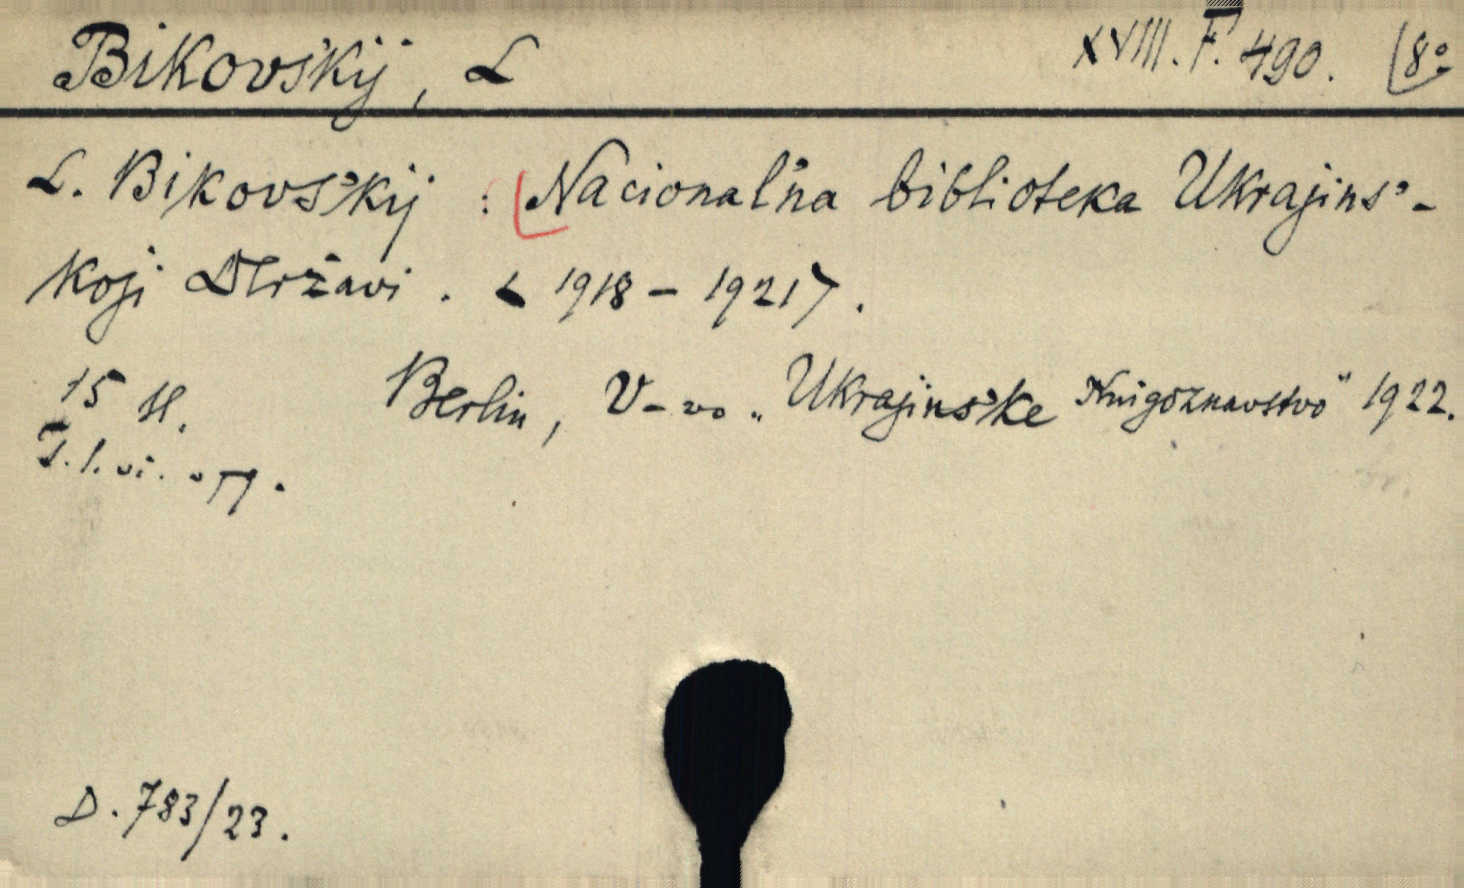 Bikovs'kij, L XVIII. F. 490. (8°
L. Bikovs'kij : Nacional'na biblioteka Ukrajins'-
koji Deržavi. < 1918 - 1921>.
15 H. Berlin, V-vo „Ukrajins'ke Knigoznavstvo" 1922.
D. 783/23.